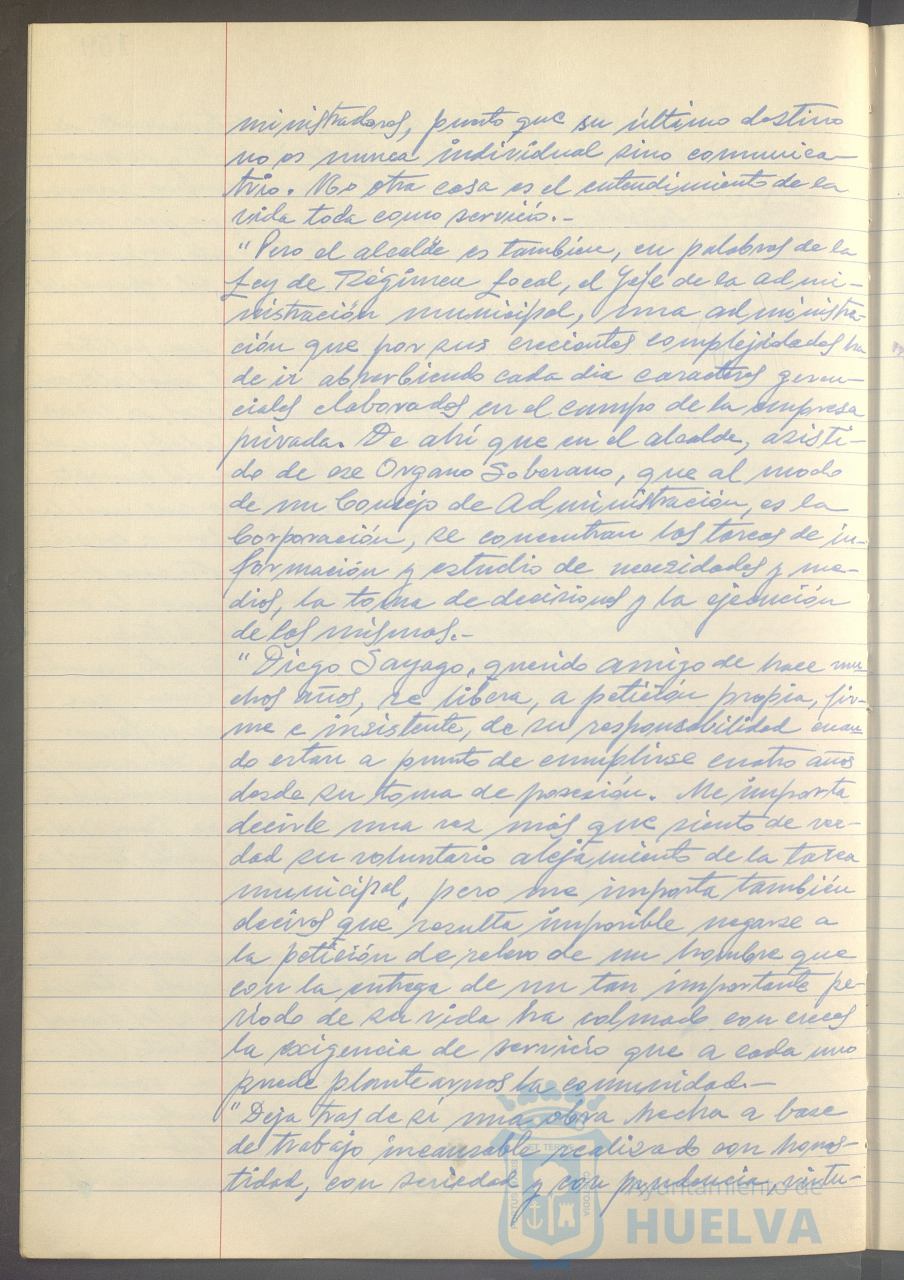 ministradores, puesto que su último destino
no es nunca individual sino comunica-
trio. No otra cosa es el entendimiento de la
vida toda como servicio.-
"Pero el alcalde es también, en palabras de la
Ley de Régimen Local, el Jefe de la admi-
nistración municipal, una administra-
ción que por sus crecientes complejidades ha
de ir absorbiendo cada día caracteres geren-
ciales elaborados en el campo de la empresa
privada. De ahí que en el alcalde, asisti-
do de ese Organo Soberano, que al modo
de un Consejo de Administración, es la
Corporación, se concentran las tareas de in-
formación y estudio de necesidades y me-
dios, la toma de decisiones y la ejecución
de las mismas.-
"Diego Sayago, querido amigo de hace mu-
chos años, se libera, a petición propia, fir-
me e insistente, de su responsabilidad cuan-
do estan a punto de cumplirse cuatro años
desde su toma de posesión. Me importa
decirle una vez más que siento de ver-
dad su voluntario alejamiento de la tarea
municipal, pero me importa también
deciros que resulta imposible negarse a
la petición de relevo de un hombre que
con la entrega de un tan importante pe-
ríodo de su vida ha colmado con creces
la exigencia de servicio que a cada uno
puede plantearnos la comunidad.-
"Deja tras de sí una obra hecha a base
de trabajo incansable realizado con hones-
tidad, con seriedad y con prudencia, virtu-
Ayuntamiento de
HUELVA